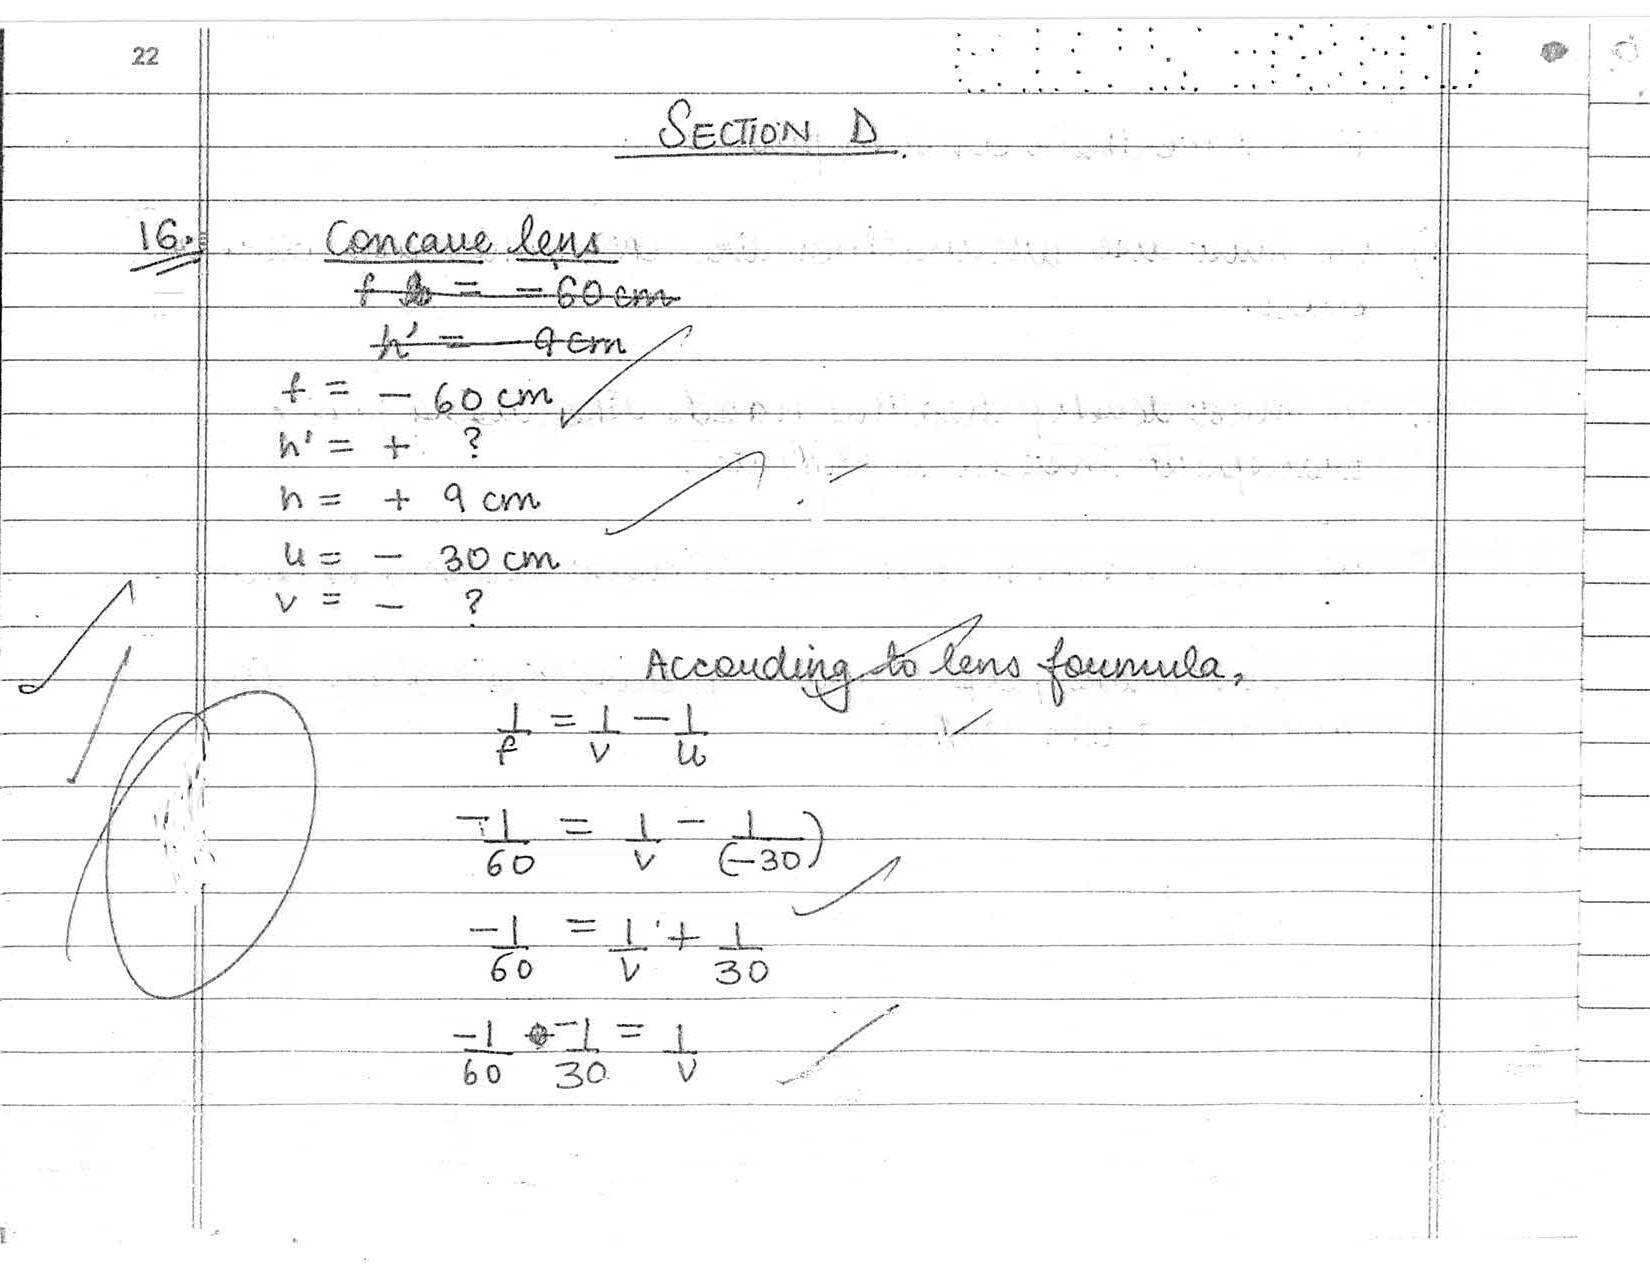 22
SECTION D.
16.
Concave lens
f = - 60 cm
h' = 9 cm
f = - 60 cm
h' = + ?
h = + 9 cm
u = - 30 cm
v = - ?
According to lens formula,
1/f = 1/v - 1/u
-1/60 = 1/v - 1/(-30)
-1/60 = 1/v + 1/30
-1/60 -1/30 = 1/v